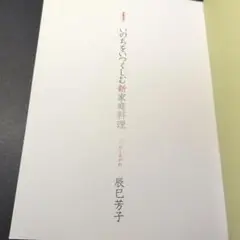 いのちをいつくしむ新家庭料理
辰巳芳子